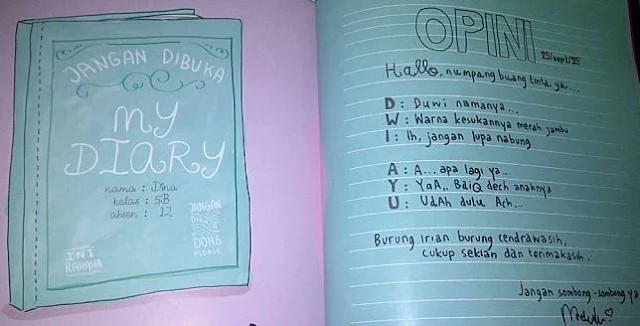 JANGAN DIBUKA
MY
DIARY
nama : Dina
kelas : 5B
absen : 12
JANGAN
DIBUKA
DONG
PLEASE
INI
RAHASIA
OPINI
25/sept/95
Hallo, numpang buang tinta ya...
D : Duwi namanya...
W : Warna kesukannya merah jambu
I : Ih, jangan lupa nabung
A : A... apa lagi ya..
Y : YaA,, BAi@ dech anaknya
U : UdAh dulu Ach...
Burung Irian burung cendrawasih,
cukup sekian dan terimakasih.
Jangan sombong-sombong ya